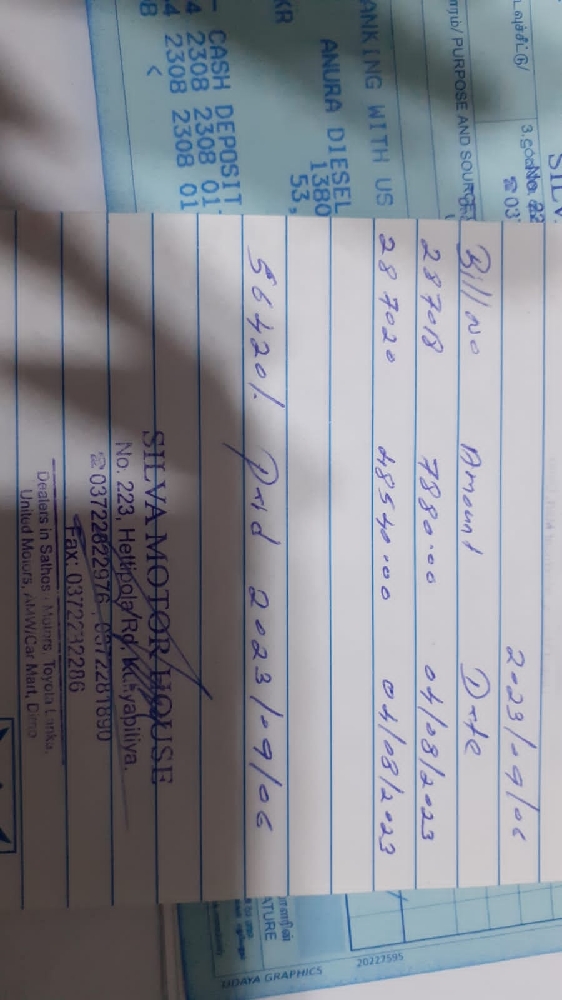 2023/09/06
Bill No Amount Date
287018 7880.00 04/08/2023
287020 48540.00 04/08/2023
56420/. Paid 2023/09/06
SILVA MOTOR HOUSE
No. 223, Hettipola Rd, Kuliyapitiya.
☎03722822976, 0372281890
Fax: 0372232286
Dealers in Sathosa Motors, Toyota Lanka,
United Motors, AMW/Car Mart, Dimo
PURPOSE AND SOURCE
ANKING WITH US
ANURA DIESEL
1380
53,
KR
CASH DEPOSIT
2308 2308 01
2308 2308 01
<
ATURE
UDAYA GRAPHICS
20227595